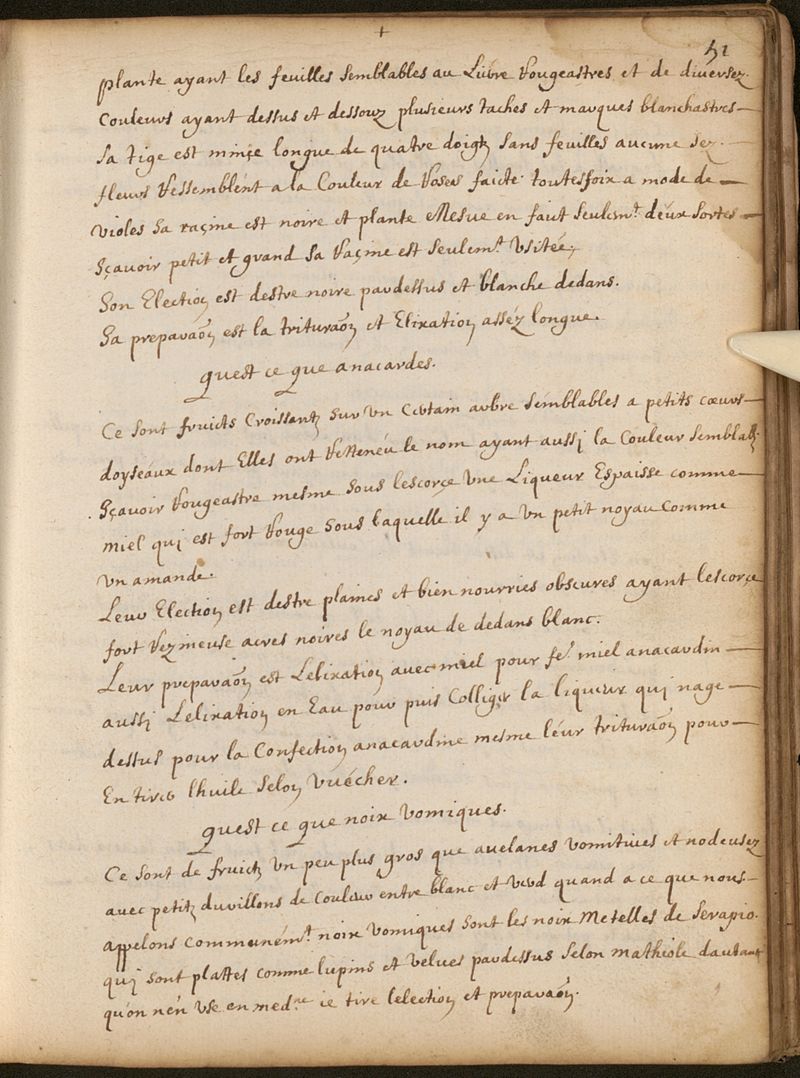 51
plante ayant les feuilles semblables au Lierre rougeastres et de diversez
couleurs ayant dessus et dessouz plusieurs taches et marques blanchastres
sa tige est minçe longue de quatre doigtz sans feuilles aucune sez
fleurs ressemblent a la Couleur de roses faicte toutesfoix a mode de
violes sa raçine est noire et plante Mesue en faut seulemt. deux sortes
sçavoir petit et grand sa raçine est seulemt. Usitée,
Son Election est destre noire pardessus et blanche dedans.
Sa preparaõn est la trituraõn et Elixation asséz longue.
quest ce que anacardes.
Ce sont fruicts Croissantz sur un Certain arbre semblables a petits coeurs
doyseaux dont Elles ont rettenéu le nom ayant aussi la Couleur semblable
sçavoir rougeastre mesme sous lescorçe une Liqueur Espaisse comme
miel qui est fort rouge sous laquelle il y a un petit noyau comme
un amande.
Leur Election est destre plaines et bien nourries obscures ayant lescorçe
fort rezineuse acres noires le noyau de dedans blanc.
Leur preparaõn est Lelixation avec miel pour fe. miel anacardin
aussi Lelixation en Eau pour puis Colliger la liqueur qui nage
dessus pour la Confection anacardine mesme léur trituraõn pour
En tirer lhuile selon Vuécher.
quest ce que noix vomiques.
Ce sont de fruictz un peu plus gros que avelanes vomitives et nodeusez
avec petitz durillons de couleur entre blanc et verd quand a ce que nous
appelons communémt. noix vomiques sont les noix Metelles de Serapio.
qui sont plattes comme lupins et velues pardessus selon mathiole dautant
qu'on nén use en medne. ie tire lelection et preparaõn.